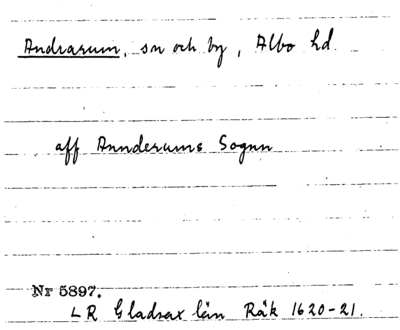 Andrarum, sn och by, Albo hd.
aff Annderums Sognn
Nr 5897.
LR Gladsax län Räk 1620-21.